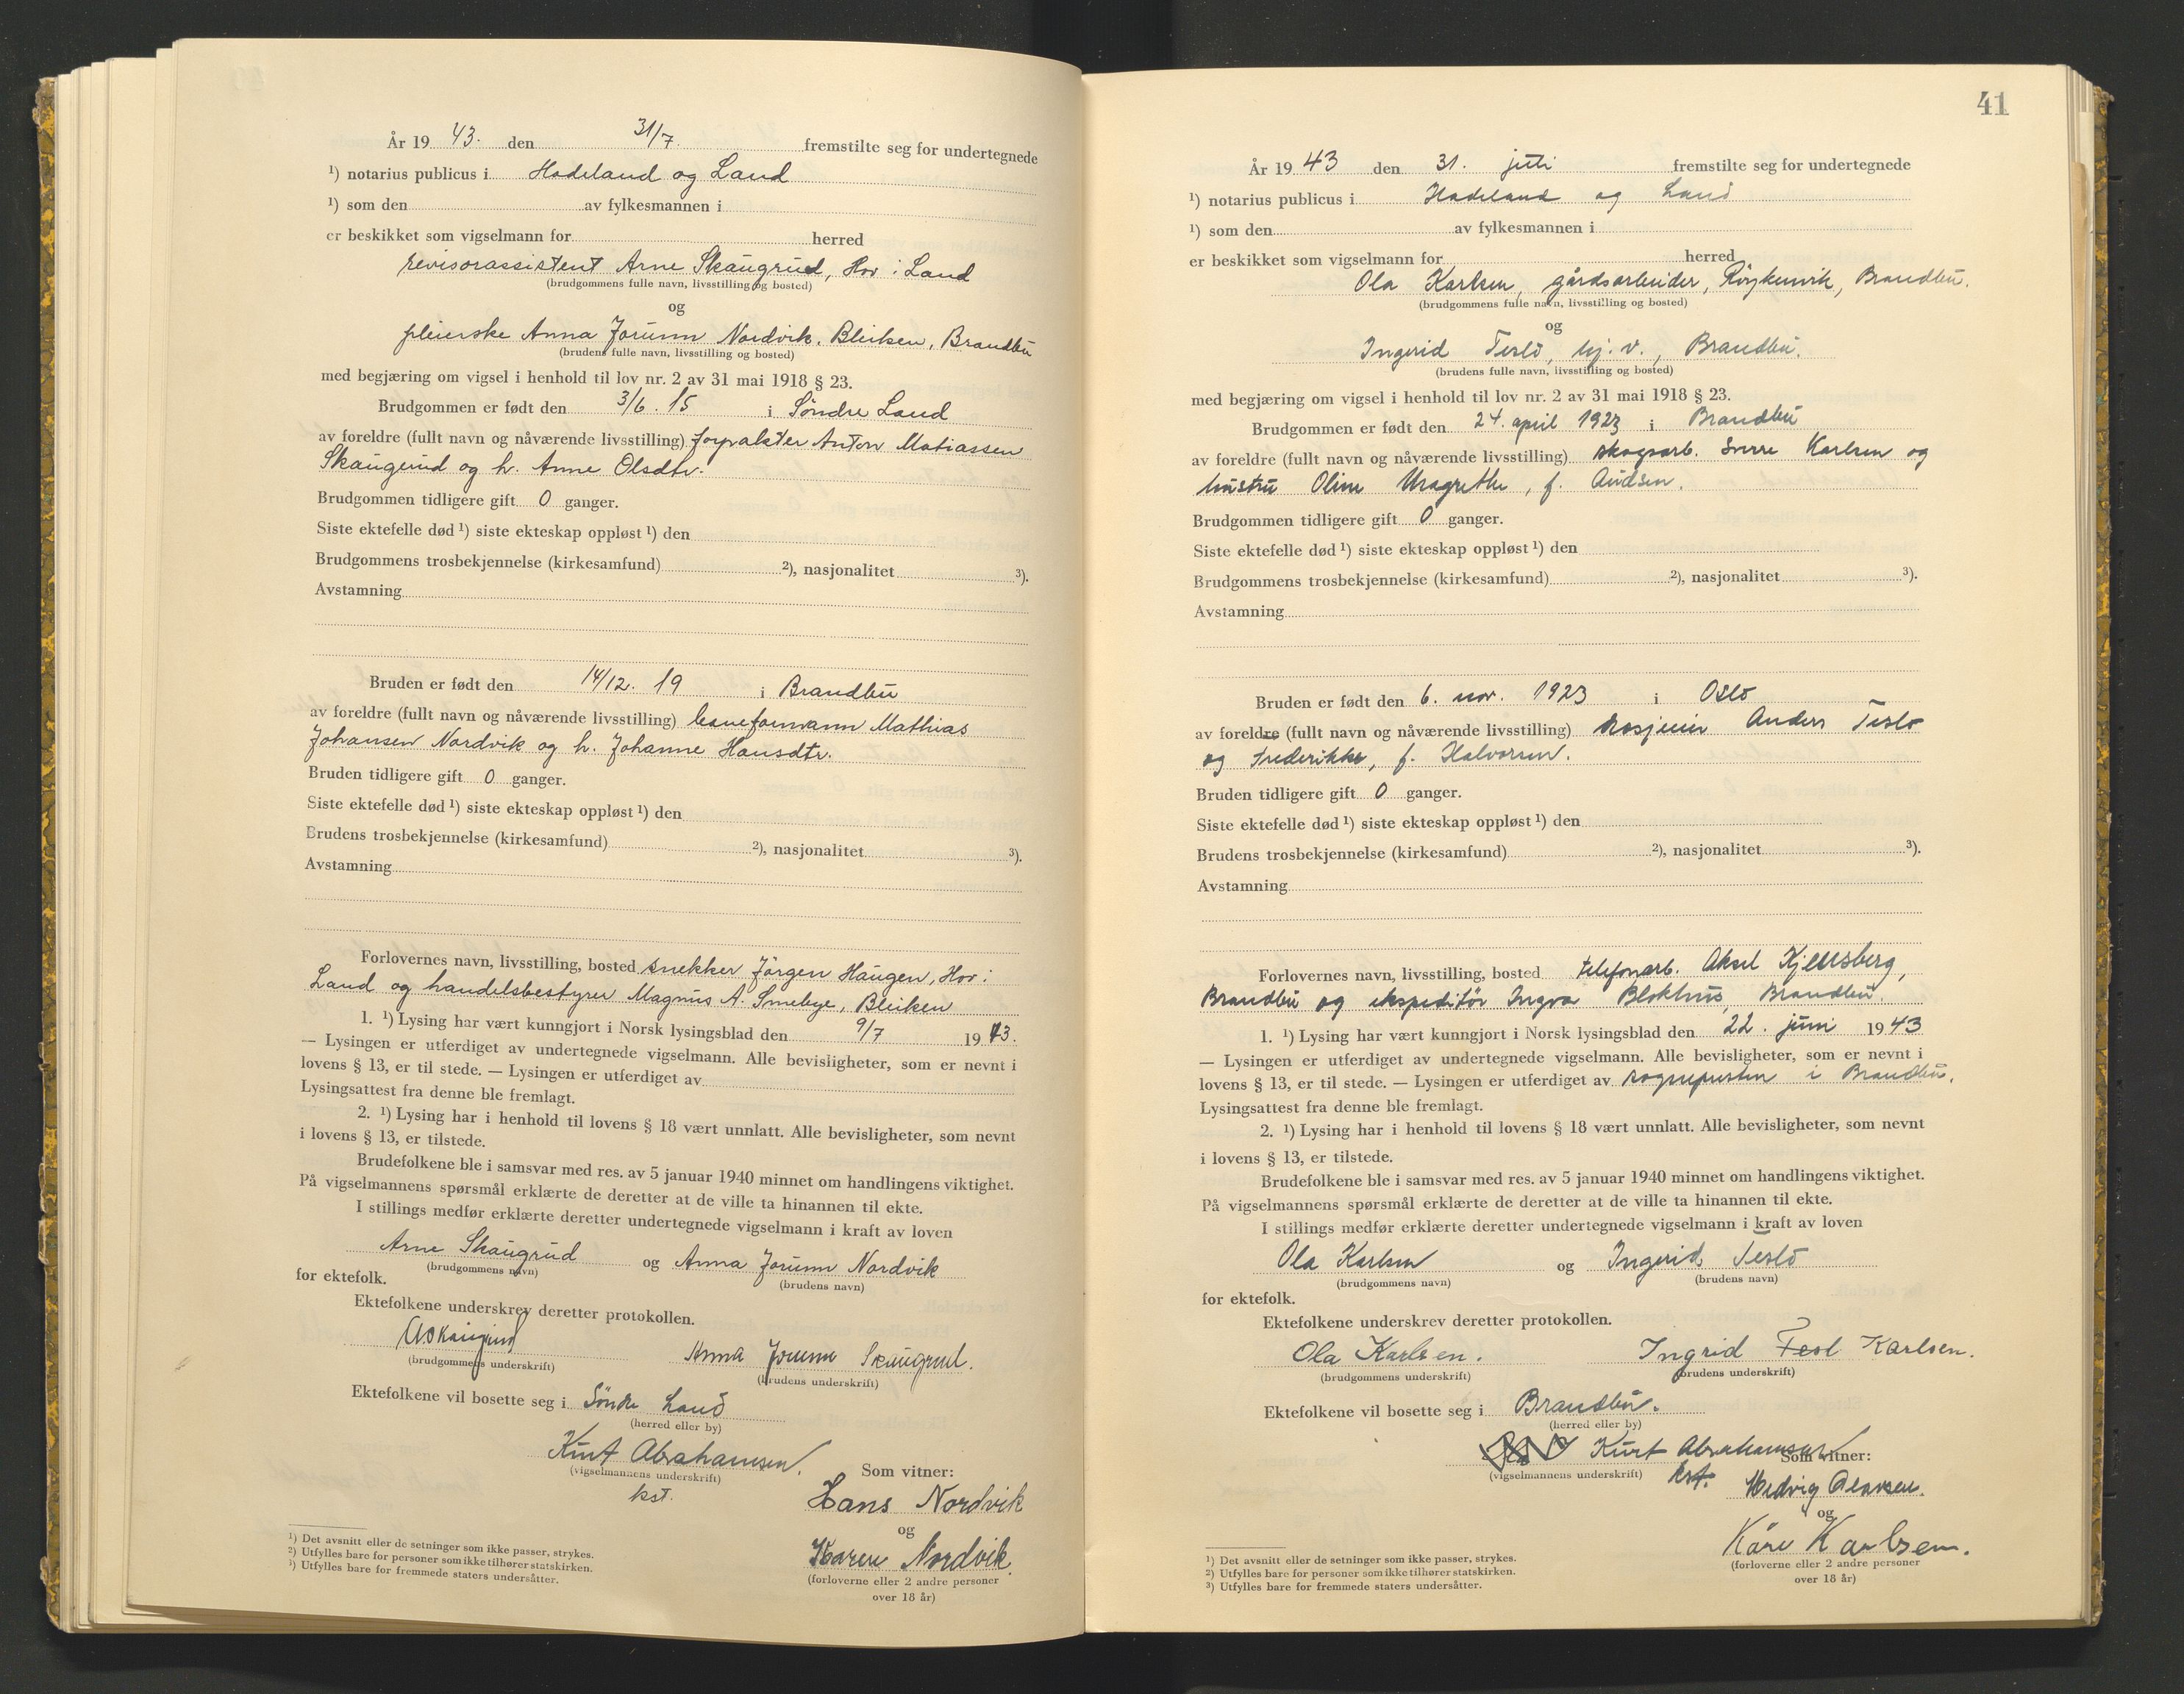 År 19 43. den 31/7. fremstilte seg for undertegnede
¹) notarius publicus i Hadeland og Land
¹) som den av fylkesmannen i
er beskikket som vigselmann for herred
revisorassistent Arne Skaugrud, Hov i Land
(brudgommens fulle navn, livsstilling og bosted)
og
pleierske Anna Jorunn Nordvik, Bleiken, Brandbu
(brudens fulle navn, livsstilling og bosted)
med begjæring om vigsel i henhold til lov nr. 2 av 31 mai 1918 § 23.
Brudgommen er født den 3/6. 15 i Söndre Land
av foreldre (fullt navn og nåværende livsstilling) forpakter Anton Matiassen
Skaugerud og h. Anne Olsdtr.
Brudgommen tidligere gift 0 ganger.
Siste ektefelle død ¹) siste ekteskap oppløst ¹) den
Brudgommens trosbekjennelse (kirkesamfund) ²), nasjonalitet ³).
Avstamning
Bruden er født den 14/12. 19 i Brandbu
av foreldre (fullt navn og nåværende livsstilling) baneformann Mathias
Johansen Nordvik og h. Johanne Hansdtr.
Bruden tidligere gift 0 ganger.
Siste ektefelle død ¹) siste ekteskap oppløst ¹) den
Brudens trosbekjennelse (kirkesamfund) ²), nasjonalitet ³).
Avstamning
Forlovernes navn, livsstilling, bosted snekker Jörgen Haugen, Hov i
Land og handelsbestyrer Magnus A. Smebye, Bleiken
1. ¹) Lysing har vært kunngjort i Norsk lysingsblad den 9/7 19 43.
— Lysingen er utferdiget av undertegnede vigselmann. Alle bevisligheter, som er nevnt i
lovens § 13, er til stede. — Lysingen er utferdiget av
Lysingsattest fra denne ble fremlagt.
2. ¹) Lysing har i henhold til lovens § 18 vært unnlatt. Alle bevisligheter, som nevnt
i lovens § 13, er tilstede.
Brudefolkene ble i samsvar med res. av 5 januar 1940 minnet om handlingens viktighet.
På vigselmannens spørsmål erklærte de deretter at de ville ta hinannen til ekte.
I stillings medfør erklærte deretter undertegnede vigselmann i kraft av loven
Arne Skaugrud og Anna Jorunn Nordvik
(brudgommens navn) (brudens navn)
for ektefolk.
Ektefolkene underskrev deretter protokollen.
ASkaugrud Anna Jorunn Skaugrud.
(brudgommens underskrift) (brudens underskrift)
Ektefolkene vil bosette seg i Söndre Land
(herred eller by)
Kurt Abrahamsen.
(vigselmannens underskrift)
kst.
Som vitner:
Hans Nordvik
og
Karen Nordvik.
(forloverne eller 2 andre personer
over 18 år)
¹) Det avsnitt eller de setninger som ikke passer, strykes.
²) Utfylles bare for personer som ikke tilhører statskirken.
³) Utfylles bare for fremmede staters undersåtter.
41
År 19 43 den 31. juli fremstilte seg for undertegnede
¹) notarius publicus i Hadeland og Land
¹) som den av fylkesmannen i
er beskikket som vigselmann for herred
Ola Karlsen, gårdsarbeider, Röykenvik, Brandbu.
(brudgommens fulle navn, livsstilling og bosted)
og
Ingerid Teslo, hj. v., Brandbu.
(brudens fulle navn, livsstilling og bosted)
med begjæring om vigsel i henhold til lov nr. 2 av 31 mai 1918 § 23.
Brudgommen er født den 24. april 1923 i Brandbu
av foreldre (fullt navn og nåværende livsstilling) skogsarb. Sverre Karlsen og
hustru Oline Margrethe, f. Audsen.
Brudgommen tidligere gift 0 ganger.
Siste ektefelle død ¹) siste ekteskap oppløst ¹) den
Brudgommens trosbekjennelse (kirkesamfund) ²), nasjonalitet ³).
Avstamning
Bruden er født den 6. nov. 1923 i Oslo
av foreldre (fullt navn og nåværende livsstilling) Anders Teslo
og Frederikke, f. Halvorsen.
Bruden tidligere gift 0 ganger.
Siste ektefelle død ¹) siste ekteskap oppløst ¹) den
Brudens trosbekjennelse (kirkesamfund) ²), nasjonalitet ³).
Avstamning
Forlovernes navn, livsstilling, bosted telefonarb. Aksel Kjellsberg,
Brandbu og ekspeditör Ingva Blokhus, Brandbu.
1. ¹) Lysing har vært kunngjort i Norsk lysingsblad den 22. juni 19 43
— Lysingen er utferdiget av undertegnede vigselmann. Alle bevisligheter, som er nevnt i
lovens § 13, er til stede. — Lysingen er utferdiget av sognepresten i Brandbu.
Lysingsattest fra denne ble fremlagt.
2. ¹) Lysing har i henhold til lovens § 18 vært unnlatt. Alle bevisligheter, som nevnt
i lovens § 13, er tilstede.
Brudefolkene ble i samsvar med res. av 5 januar 1940 minnet om handlingens viktighet.
På vigselmannens spørsmål erklærte de deretter at de ville ta hinannen til ekte.
I stillings medfør erklærte deretter undertegnede vigselmann i kraft av loven
Ola Karlsen og Ingerid Teslo
(brudgommens navn) (brudens navn)
for ektefolk.
Ektefolkene underskrev deretter protokollen.
Ola Karlsen. Ingrid Tesl Karlsen.
(brudgommens underskrift) (brudens underskrift)
Ektefolkene vil bosette seg i Brandbu.
(herred eller by)
Kurt Abrahamsen
(vigselmannens underskrift) kst.
Som vitner:
Hedvig Olavsen.
og
Kåre Karlsen.
(forloverne eller 2 andre personer
over 18 år)
¹) Det avsnitt eller de setninger som ikke passer, strykes.
²) Utfylles bare for personer som ikke tilhører statskirken.
³) Utfylles bare for fremmede staters undersåtter.